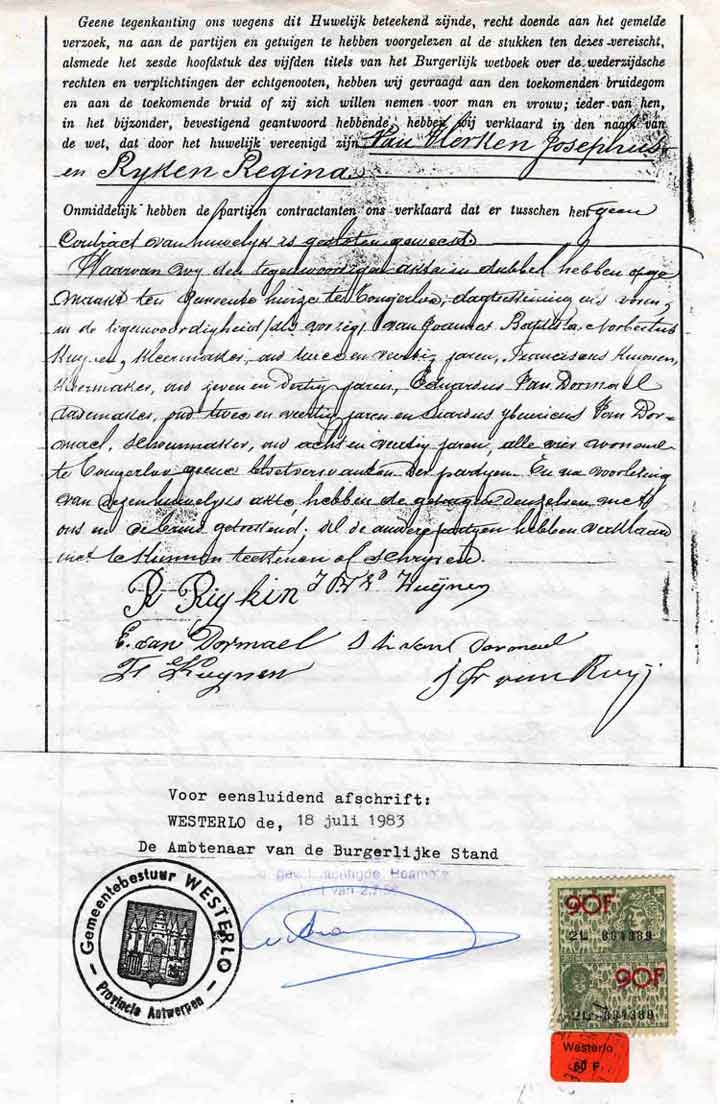 Geene tegenkanting ons wegens dit Huwelijk beteekend zijnde, recht doende aan het gemelde
verzoek, na aan de partijen en getuigen te hebben voorgelezen al de stukken ten dezes vereischt,
alsmede het zesde hoofdstuk des vijfden titels van het Burgerlijk wetboek over de wederzijdsche
rechten en verplichtingen der echtgenooten, hebben wij gevraagd aan den toekomenden bruidegom
en aan de toekomende bruid of zij zich willen nemen voor man en vrouw; ieder van hen,
in het bijzonder, bevestigend geantwoord hebbende, hebben wij verklaard in den naam van
de wet, dat door het huwelijk vereenigd zijn Van Herken Josephus
en Ryken Regina.
Onmiddelijk hebben de partijen contractanten ons verklaard dat er tusschen hen geen
Contract van huwelyk is gesloten geweest.
Waarvan wy den tegenwoordigen akte in dubbel hebben opge
maakt ten Gemeente huize te Tongerloo, dagteekening als voren,
in de tegenwoordigheid van Joannes Baptista Norbertus
Kuynen, kleermaker, oud twee en veertig jaren, Franciscus Kuynen,
kleermaker, oud zeven en dertig jaren, Eduardus Van Dormael
oud twee en veertig jaren en Van Dor-
mael, schoenmaker, oud acht en veertig jaren, alle vier wonende
te Tongerloo geene bloetverwanten der partyen. En na voorlezing
van dezen huwelyks akte hebben de getuigen denzelven met
ons en de bruid geteekend; de andere partyen hebben verklaard
niet te kunnen teekenen of schryven.
R Riykin J B N Kuijnen
E. van Dormael van Dormael
Fr Kuynen J Fr van Ruij
Voor eensluidend afschrift:
WESTERLO de, 18 juli 1983
De Ambtenaar van de Burgerlijke Stand
Gemeentebestuur WESTERLO
Provincie Antwerpen
90F
90F
Westerlo
60 F